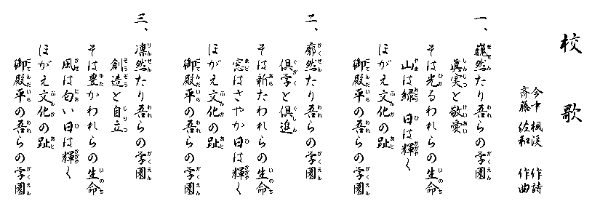 校歌
今中楓渓 作詩
斉藤佐和 作曲
一、巍然たり吾らの学園
真実と敬愛
そは光るわれらの生命
山は緑 日は輝く
ほがえ文化の趾
御殿平の吾らの学園
二、廓然たり吾らの学園
倶学と倶進
そは新たわれらの生命
窓はさやか 日は輝く
ほがえ文化の趾
御殿平の吾らの学園
三、凛然たり吾らの学園
創造と自立
そは豊かわれらの生命
風は匂い 日は輝く
ほがえ文化の趾
御殿平の吾らの学園